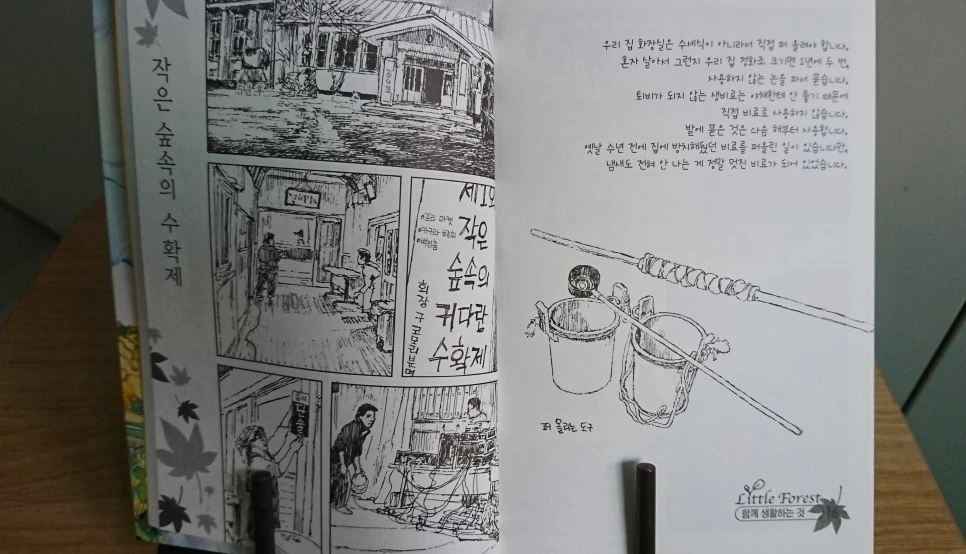 작은 숲속의 수확제
제1회
작은
숲속의
커다란
수확제
프리 마켓
회장 구 코모리분교
우리 집 화장실은 수세식이 아니라서 직접 퍼 올려야 합니다.
혼자 살아서 그런지 우리 집 정화조 크기면 1년에 두 번,
사용하지 않는 논을 파서 묻습니다.
퇴비가 되지 않는 생비료는 야채한테 안 좋기 때문에
직접 비료로 사용하지 않습니다.
밭에 묻은 것은 다음 해부터 사용합니다.
옛날 수년 전에 집에 방치해뒀던 비료를 퍼올린 일이 있습니다만,
냄새도 전혀 안 나는 게 정말 멋진 비료가 되어 있었습니다.
퍼 올리는 도구
Little Forest
함께 생활하는 것